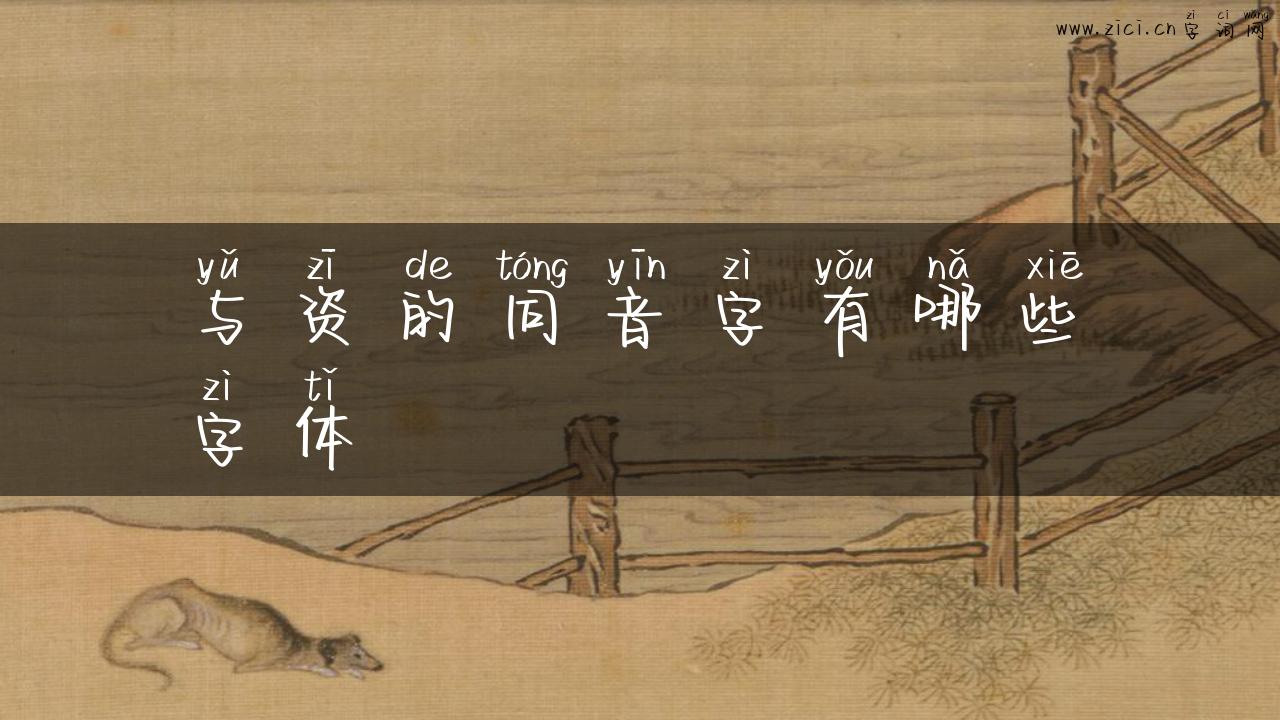 zì cí wǎng
www.zici.cn 字词网
yǔ zī de tóng yīn zì yǒu nǎ xiē
与资的同音字有哪些
zì tǐ
字体